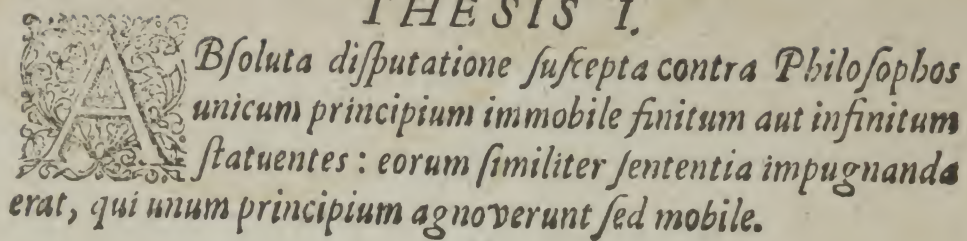 THESIS I.
ABſoluta diſputatione ſuſcepta contra Philoſophos
unicum principium immobile finitum aut infinitum
ſtatuentes: eorum ſimiliter ſententia impugnanda
erat, qui unum principium agnoverunt ſed mobile.